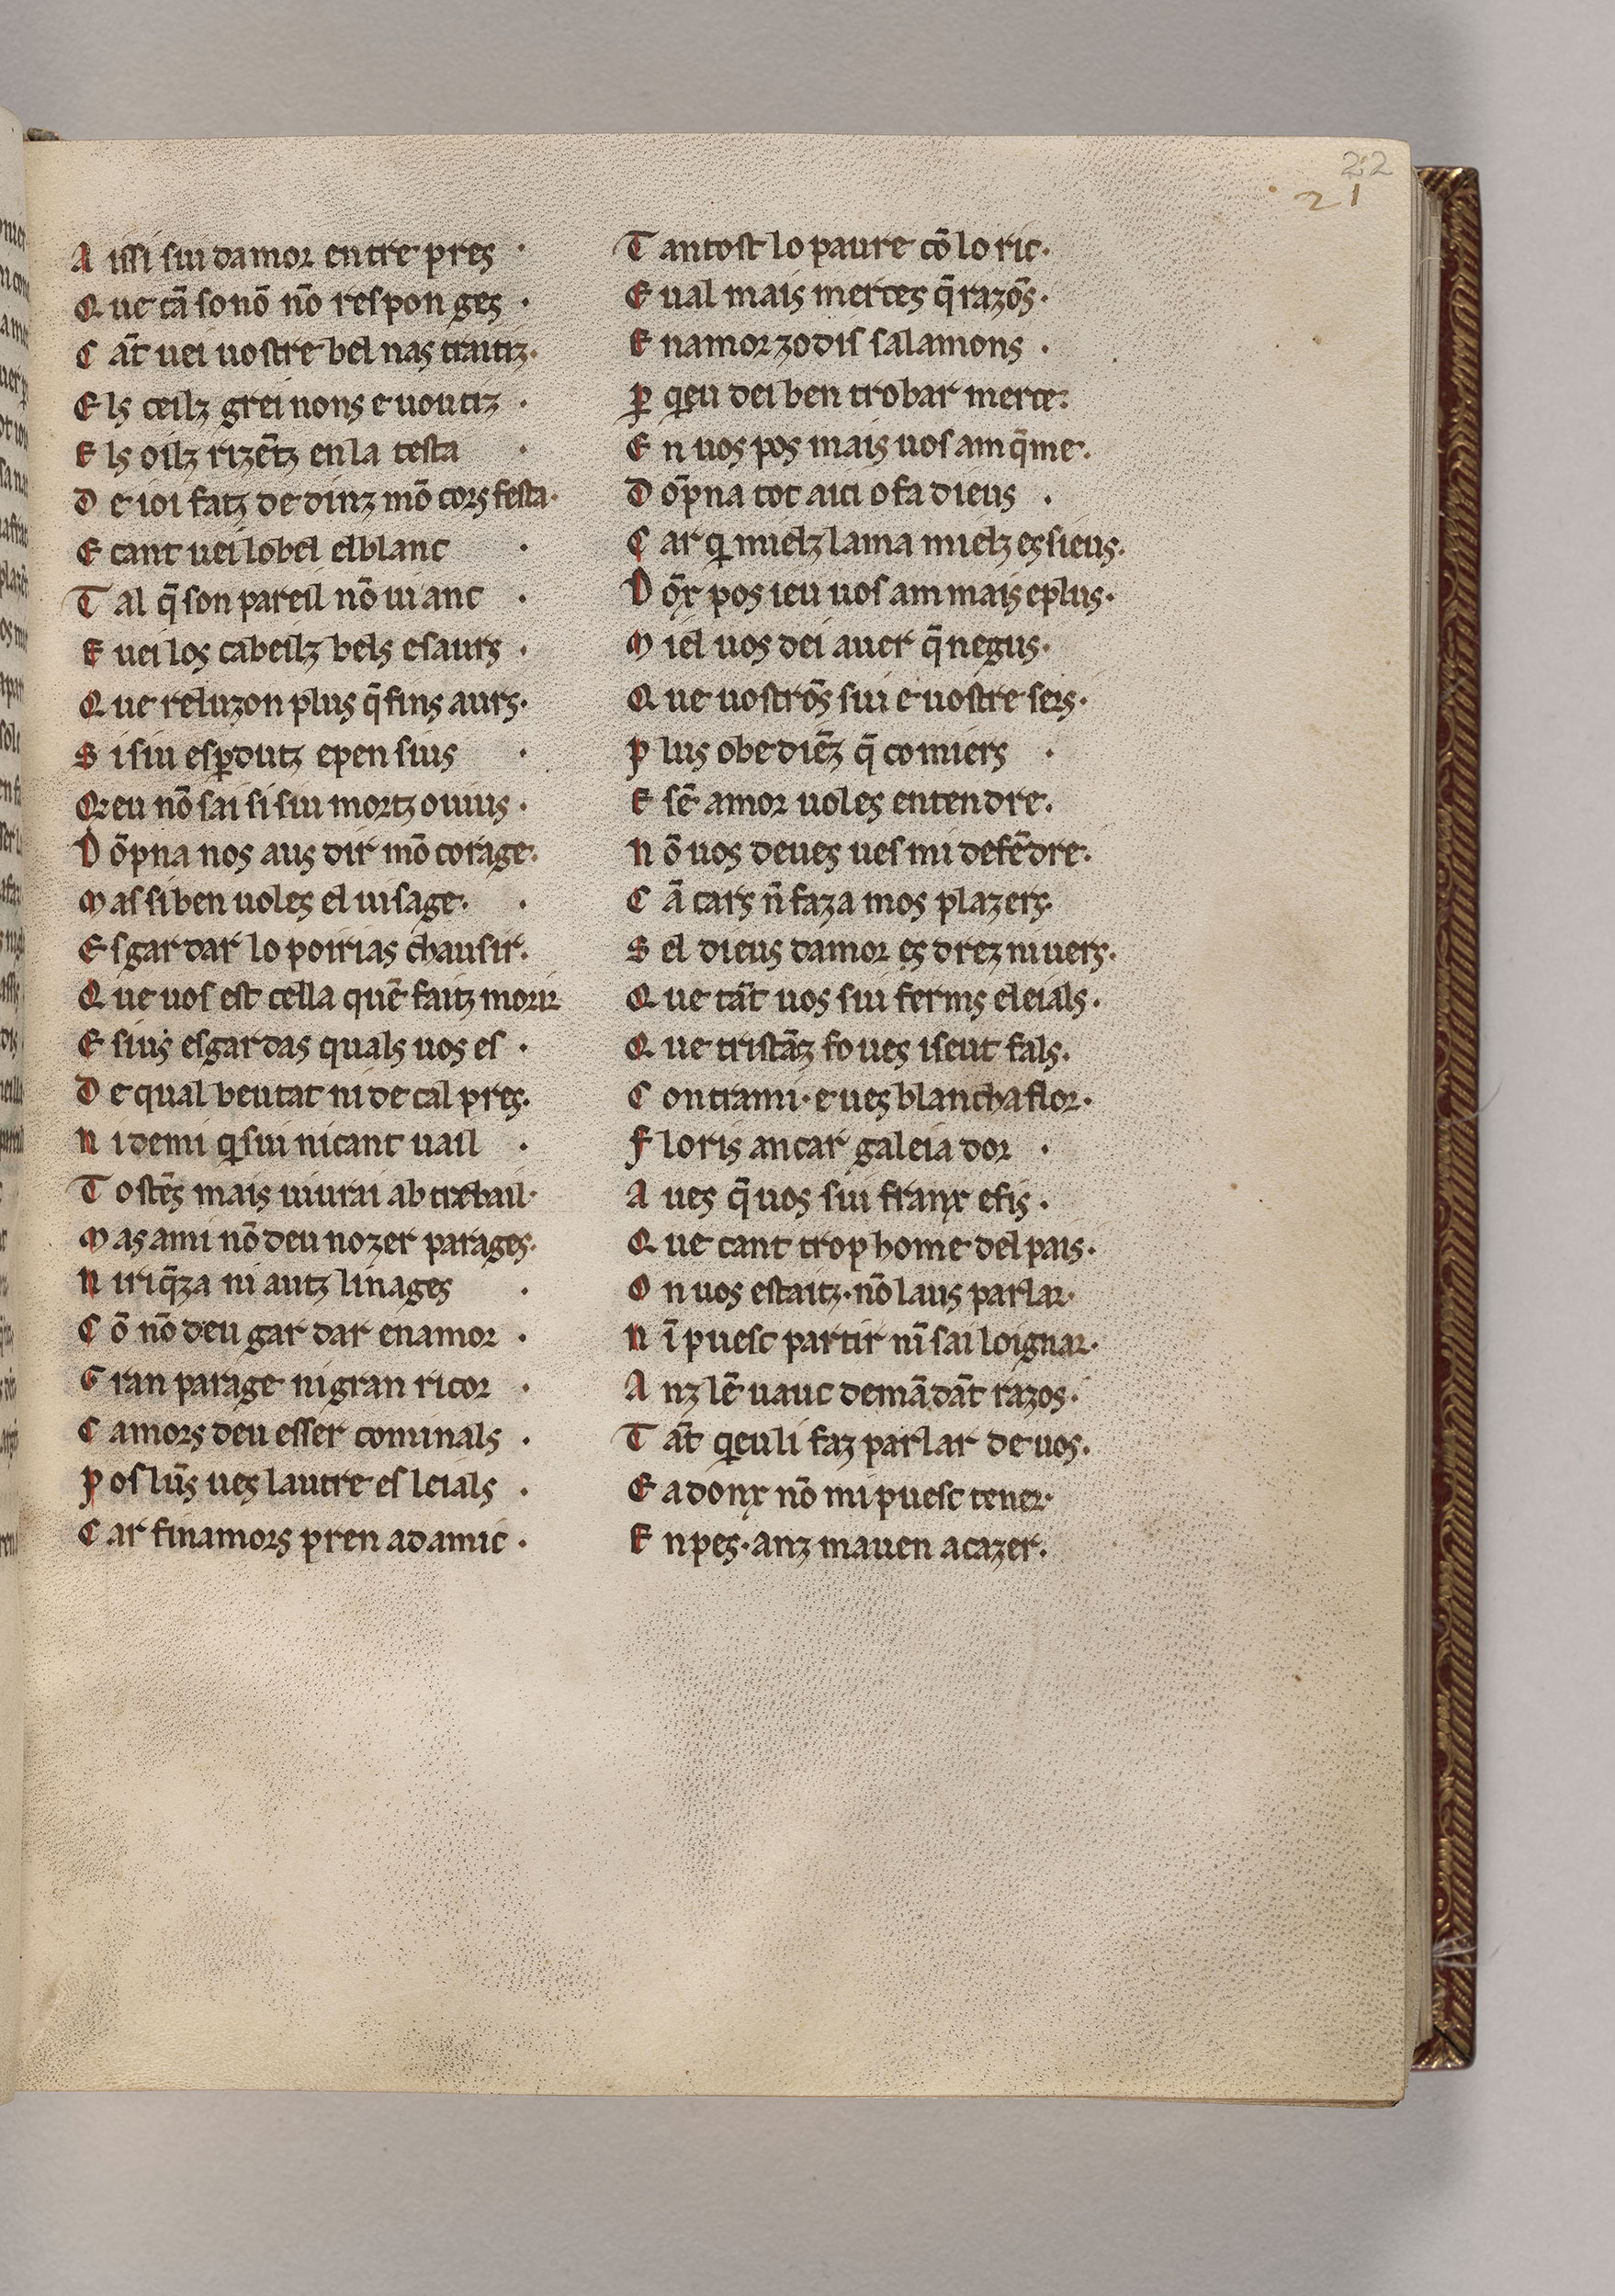 22
21
A issi sui damor entre preς ·
Q ue cā so nō nō respon geς ·
C āt uei uostre bel nas traitz·
E lς ceilz grei nonς e uoutiz ·
E lς oilz rizētz en la testa ·
D e ioi fatz de dinz mō corς festa·
E cant uei lo bel el blanc ·
T al q̄ son pareil nō ui anc ·
E uei loς cabeilz belς e saurς ·
Q ue reluzon pluς q̄ finς aurς·
S i sui esꝑdutz e pen siuς ·
Q eu nō sai si sui mortz o uiuς ·
D ōpna nos auς dir mō corage·
M as si ben uoleς el uisage· ·
E sgardar lo poirias chausir·
Q ue uos est cella quē faitz morir
E siuς esgardas qualς uos es ·
D e qual beutat ni de cal preς·
N i de mi q sui ni cant uail ·
T ostēς maiς uiurai ab trebail·
M aς a mi nō deu nozer parageς·
N i riq̄za ni autz linageς ·
C ō nō deu gar dar en amor ·
G ran parage ni gran ricor ·
C amorς deu esser cominalς ·
P os lūς ueς lautre es leialς ·
C ar finamorς pren ad amic ·
T antost lo paure cō lo ric·
E ual maiς merceς q̄ razōς·
E namor zo dis salamons ·
ꝑ qeu dei ben trobar merce·
E n uoς poς maiς uos am q̄ me·
D ōpna tot aici o fa dieuς ·
C ar q mielz lama mielz eς sieuς·
D ōx poς ieu uos am maiς e pluς·
M iel uoς dei auer q̄ neguς·
Q ue uostrōς sui e uostre serς·
P luς obediēz q̄ comierς ·
E sē amor uoleς entendre·
N ō uoς deueς ues mi defēdre·
C ā carς n̄ faz a mos plazerς·
S el dieuς damor eς drez ni uerς·
Q ue tāt uoς sui fermς e leialς·
Q ue tristāz fo ueς iseut falς·
C ontra mi· e ueς blancha flor·
F loriς ancar galeiador ·
A ueς q̄ uoς sui franx e fiς ·
Q ue cant trop home del paiς·
O n uoς estaitz· nō lauς parlar·
N ī puesc partir nī sai loignar·
A nz lē uauc demādāt razoς·
T āt qeu li faz parlar de uoς·
E a donx nō mi puesc tener·
E n peς· anz mauen a cazer·